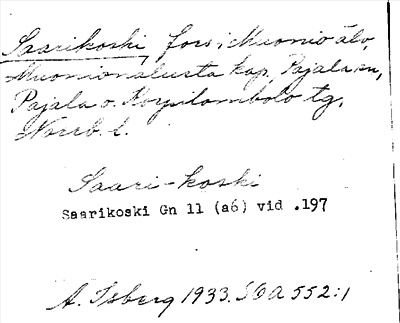 Saarikoski, fors i Muonio älv,
Muonionalusta kap, Pajala sn,
Pajala o. Korpilombolo tg,
Norrb. l.
Saari-koski
Saarikoski Gn 11 (a6) vid .197
A. Isberg 1933. SOA 552:1